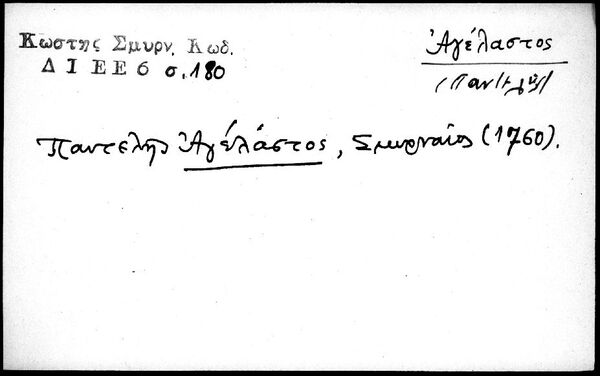 Κωστης Σμυρν. Κωδ.
Δ Ι Ε Ε 6 σ. 180
Ἀγέλαστος
Παντελῆς Ἀγέλάστος, Σμυρναῖος (1760).